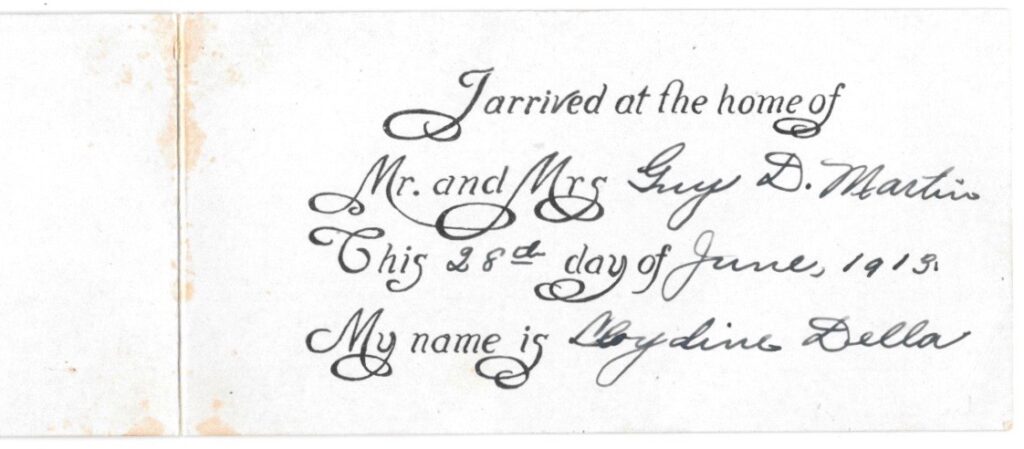 I arrived at the home of
Mr. and Mrs Guy D. Martin
This 28th day of June, 1913.
My name is Lloydine Della